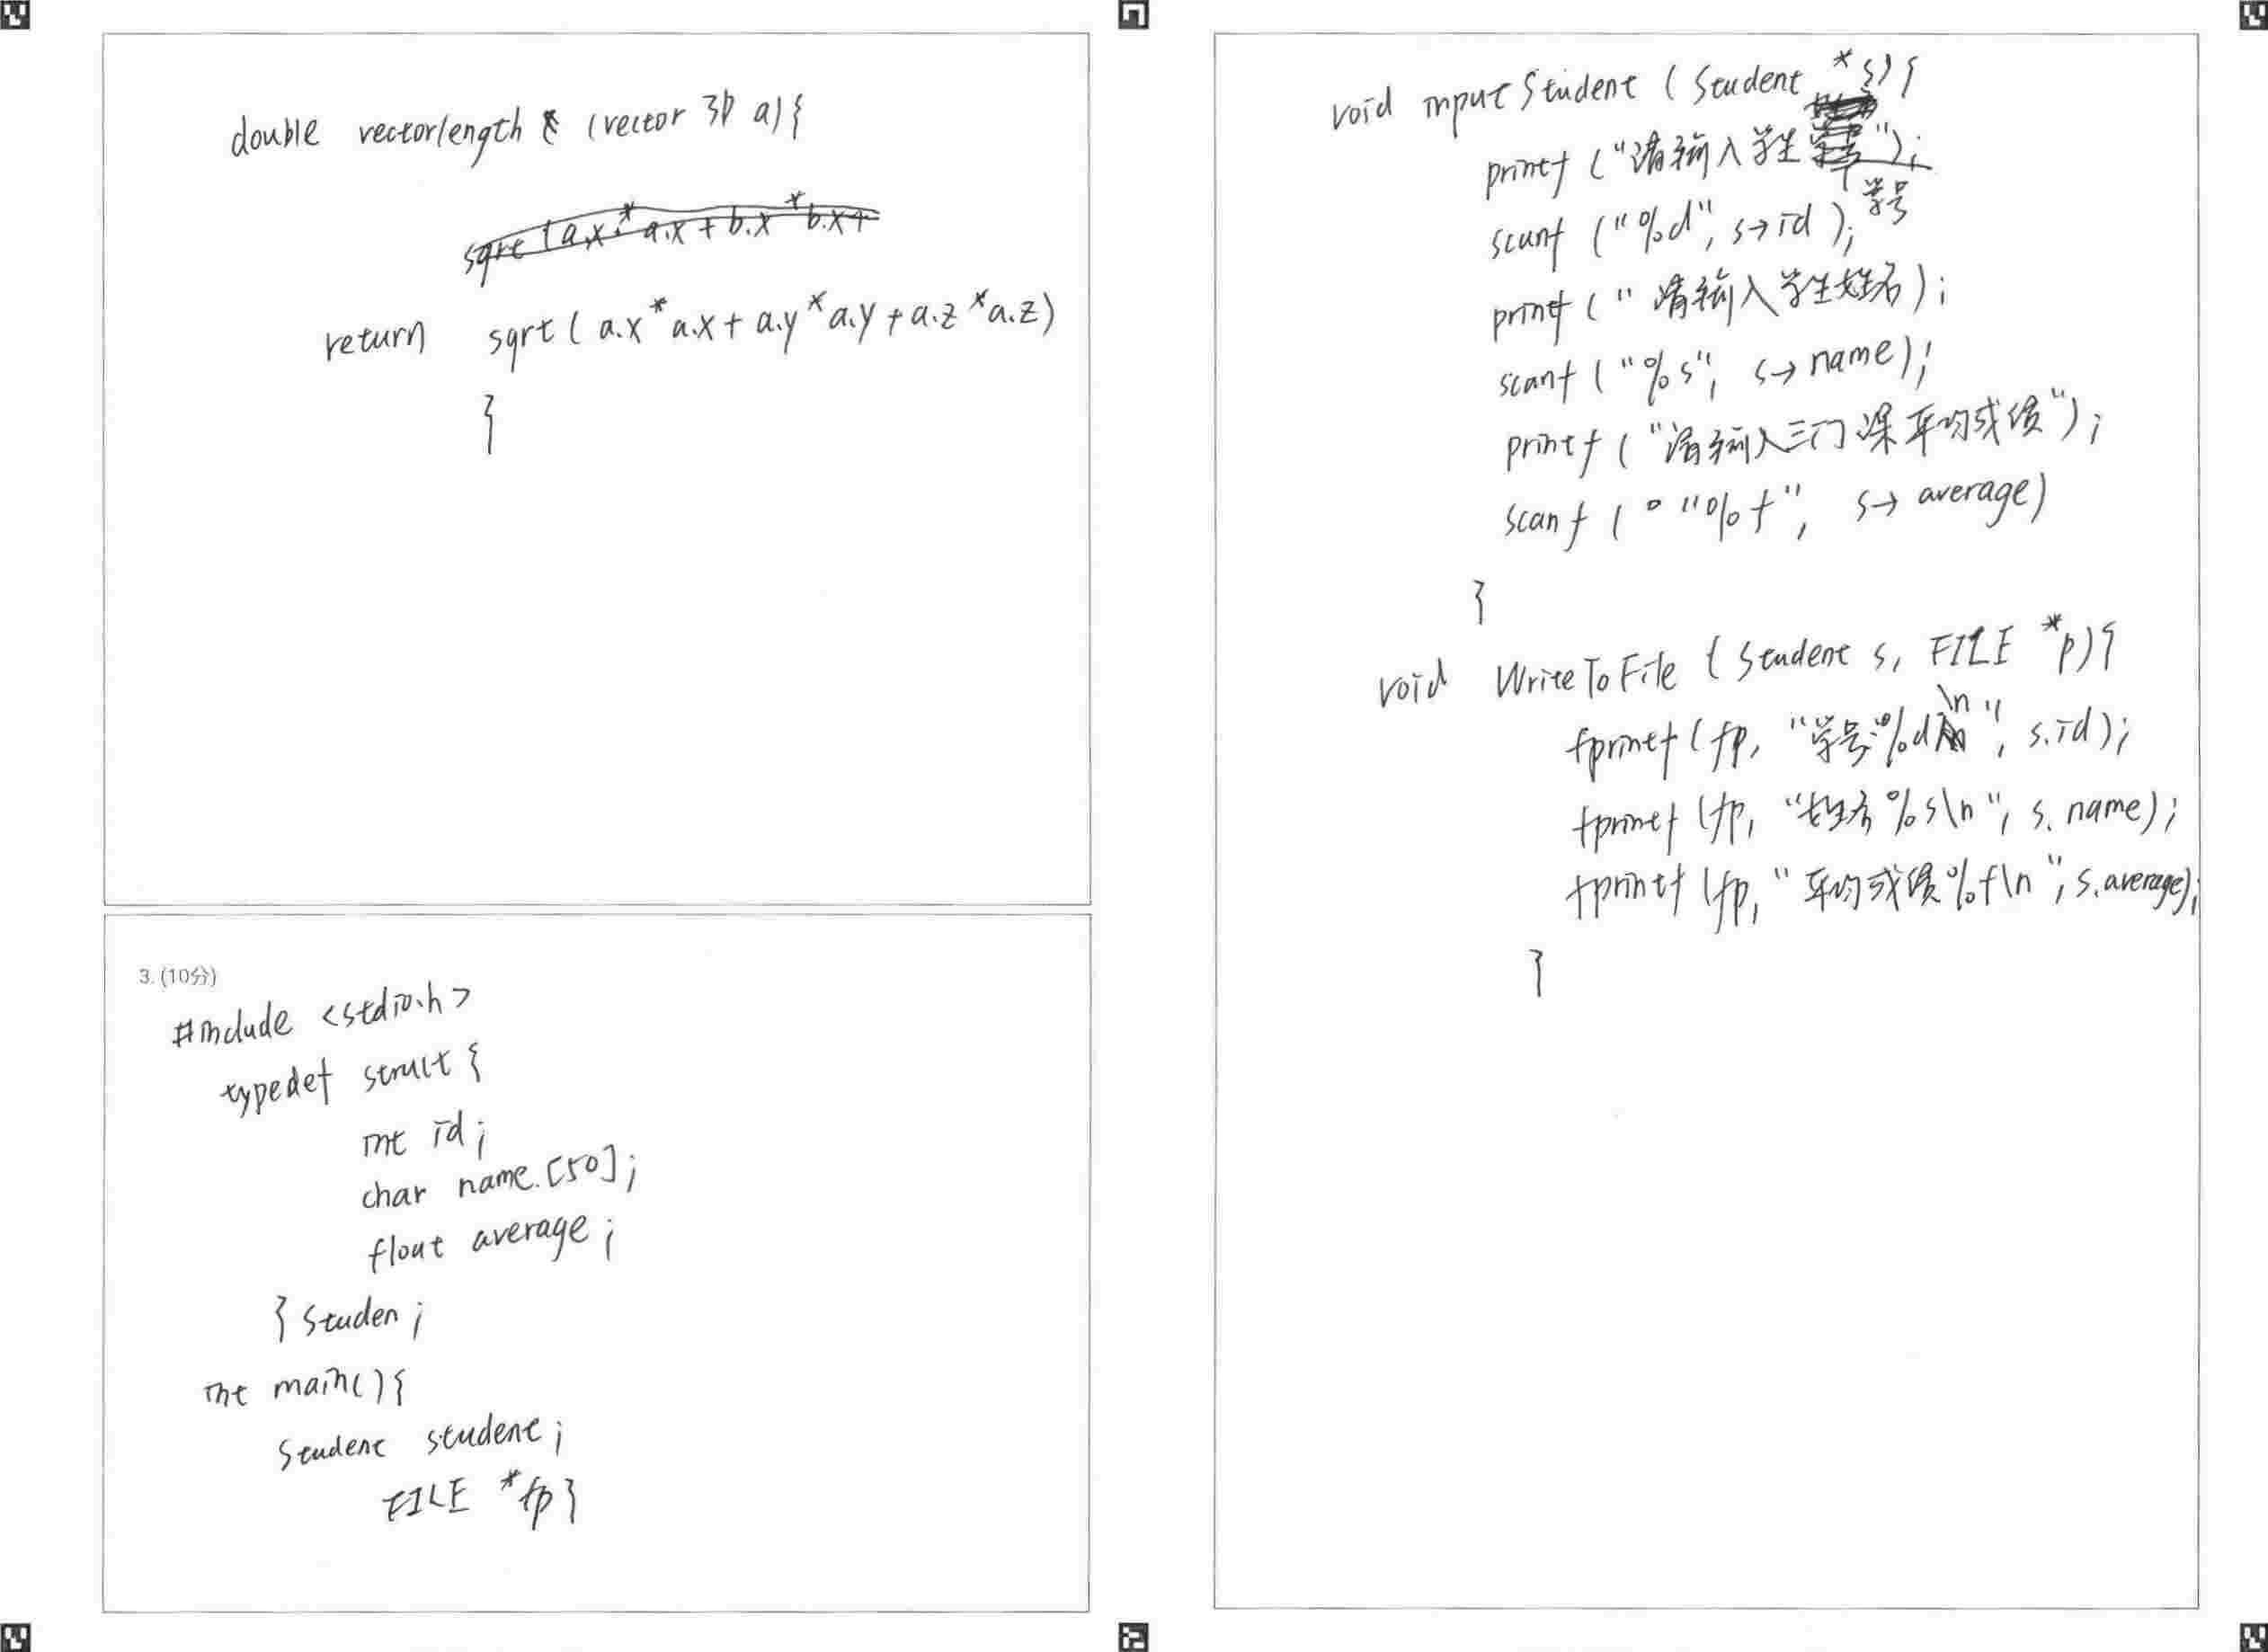 double vectorlength (vector 3D a){
sqrt (a.x * a.x + b.x * b.x +
return sqrt ( a.x * a.x + a.y * a.y + a.z * a.z)
}
3. (10分)
#include <stdio.h>
typedef struct {
int id ;
char name.[50] ;
float average ;
} Studen ;
int main(){
Student student ;
FILE *fp }
void inputStudent ( Student *s) {
printf ("请输入学生学号");
scanf ("%d", s→id );
printf (" 请输入学生姓名);
scanf ( "%s", s→ name);
printf ( "请输入三门课平均成绩");
scanf ( "%f", s→ average)
}
void WriteToFile ( Student s, FILE *p){
fprintf ( fp, "学号:%d\n", s.id);
fprintf (fp, "姓名 %s\n", s. name);
fprintf (fp, "平均成绩%f\n", s.average);
}